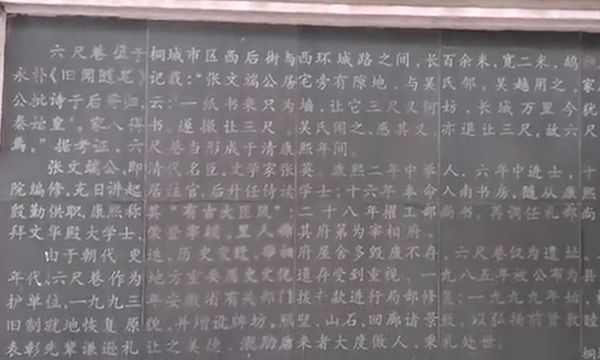 六尺巷位于桐城市区西后街与西环城路之间，长百余米，宽二米，
永朴《旧闻随笔》记载："张文端公居宅旁有隙地，与吴氏邻，吴越用之，家
公批诗于后寄归，云：一纸书来只为墙，让它三尺又何妨，长城万里今犹
秦始皇。家人得书，遂撤让三尺，吴氏闻之，感其义，亦退让三尺，故六尺
焉。"据考证，六尺巷当形成于清康熙年间。
张文端公，即清代名臣、文学家张英。康熙二年中举人，六年中进士，十
院编修，充日讲起居注官，后升任侍读学士；十六年来命入南书房，随从康熙
殷勤供职，康熙称其"有古大臣风"；二十八年擢工部尚书，再调任礼部
拜文华殿大学士，里人称其府第为宰相府。
由于朝代更迭，历史变迁，宰相府屋舍多毁废不存，六尺巷仅为遗址
年代，六尺巷作为地方重要历史文化遗存受到重视，一九八五年被公布为县
护单位，一九九三年安徽省有关部门拨千款进行局部修复；一九九九年始，
旧制就地恢复原貌，并增设牌坊、照壁、山石、回廊诸景，以弘扬前贤
表彰先辈谦逊礼让之美德，激励后来者大度做人，秉礼处世。